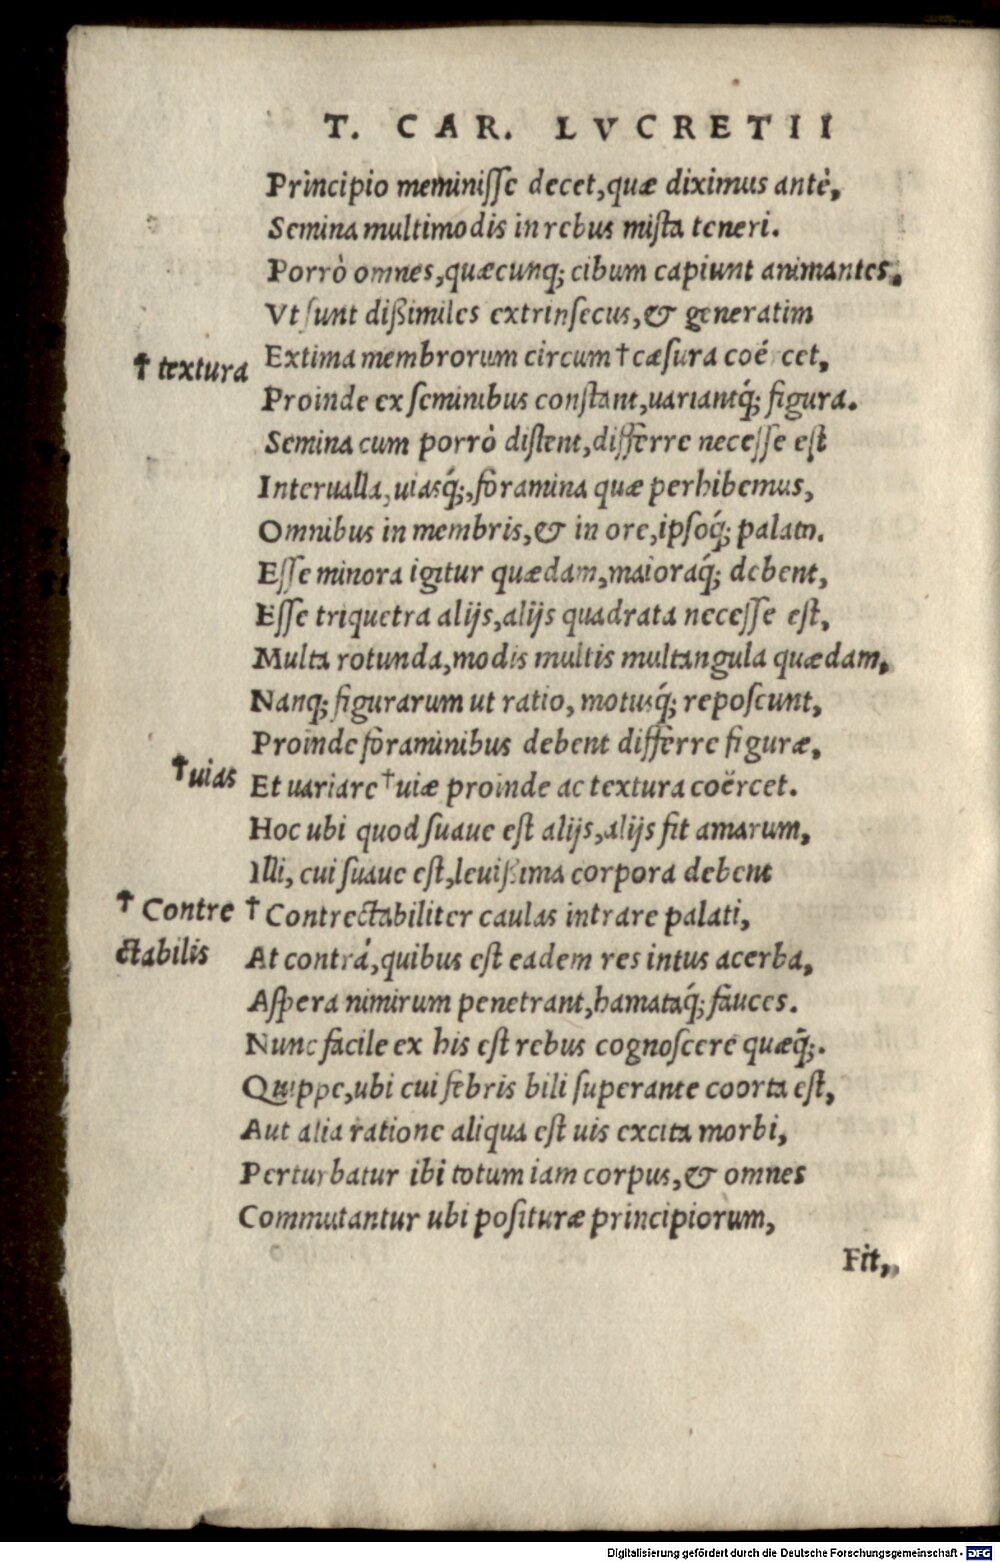 T. CAR. LVCRETII
Principio meminisse decet, quæ diximus antè,
Semina multimodis in rebus mista teneri.
Porrò omnes, quæcunq; cibum capiunt animantes,
Vt sunt dißimiles extrinsecus, & generatim
† textura
Extima membrorum circum † cæsura coé cet,
Proinde ex seminibus constant, uariantq́; figura.
Semina cum porrò distent, differre necesse est
Interualla, uiasq́;, foramina quæ perhibemus,
Omnibus in membris, & in ore, ipsoq́; palato.
Esse minora igitur quædam, maioraq́; debent,
Esse triquetra alijs, alijs quadrata necesse est,
Multa rotunda, modis multis multangula quædam,
Nanq; figurarum ut ratio, motusq́; reposcunt,
Proinde foraminibus debent differre figuræ,
† uias
Et uariare † uiæ proinde ac textura coërcet.
Hoc ubi quod suaue est alijs, alijs fit amarum,
Illi, cui suaue est, leuißima corpora debent
† Contre
† Contrectabiliter caulas intrare palati,
ctabilis
At contrá, quibus est eadem res intus acerba,
Aspera nimirum penetrant, hamataq́; fauces.
Nunc facile ex his est rebus cognoscere quæq́;.
Quippe, ubi cui febris bili superante coorta est,
Aut alia ratione aliqua est uis excita morbi,
Perturbatur ibi totum iam corpus, & omnes
Commutantur ubi posituræ principiorum,
Fit,
Digitalisierung gefördert durch die Deutsche Forschungsgemeinschaft - DFG